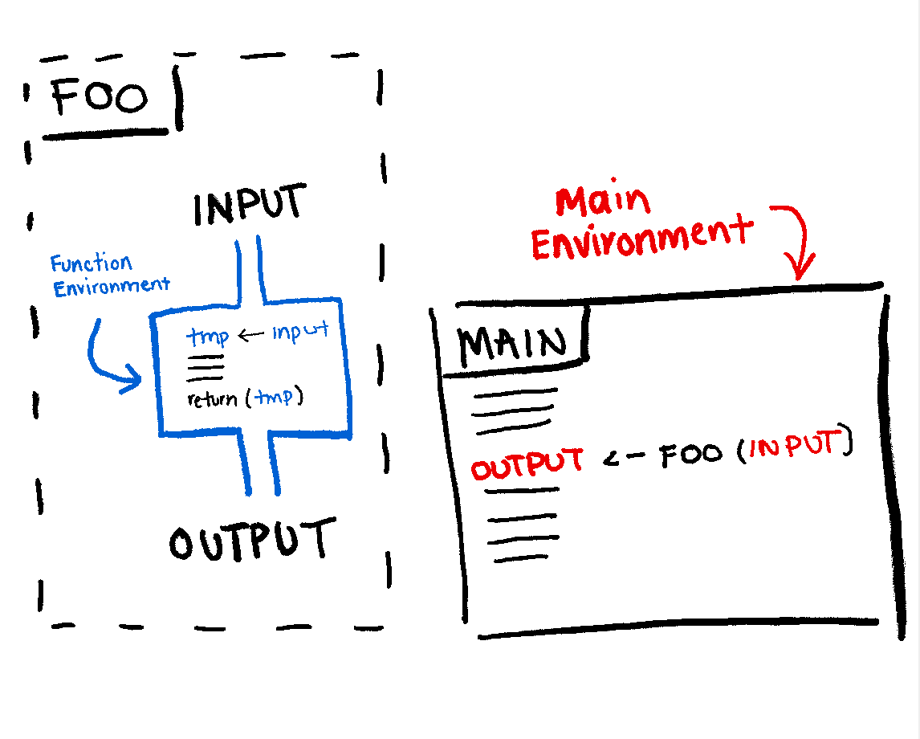 FOO
INPUT
Function
Environment
tmp ← input
return (tmp)
OUTPUT
Main
Environment
MAIN
OUTPUT ← FOO (INPUT)